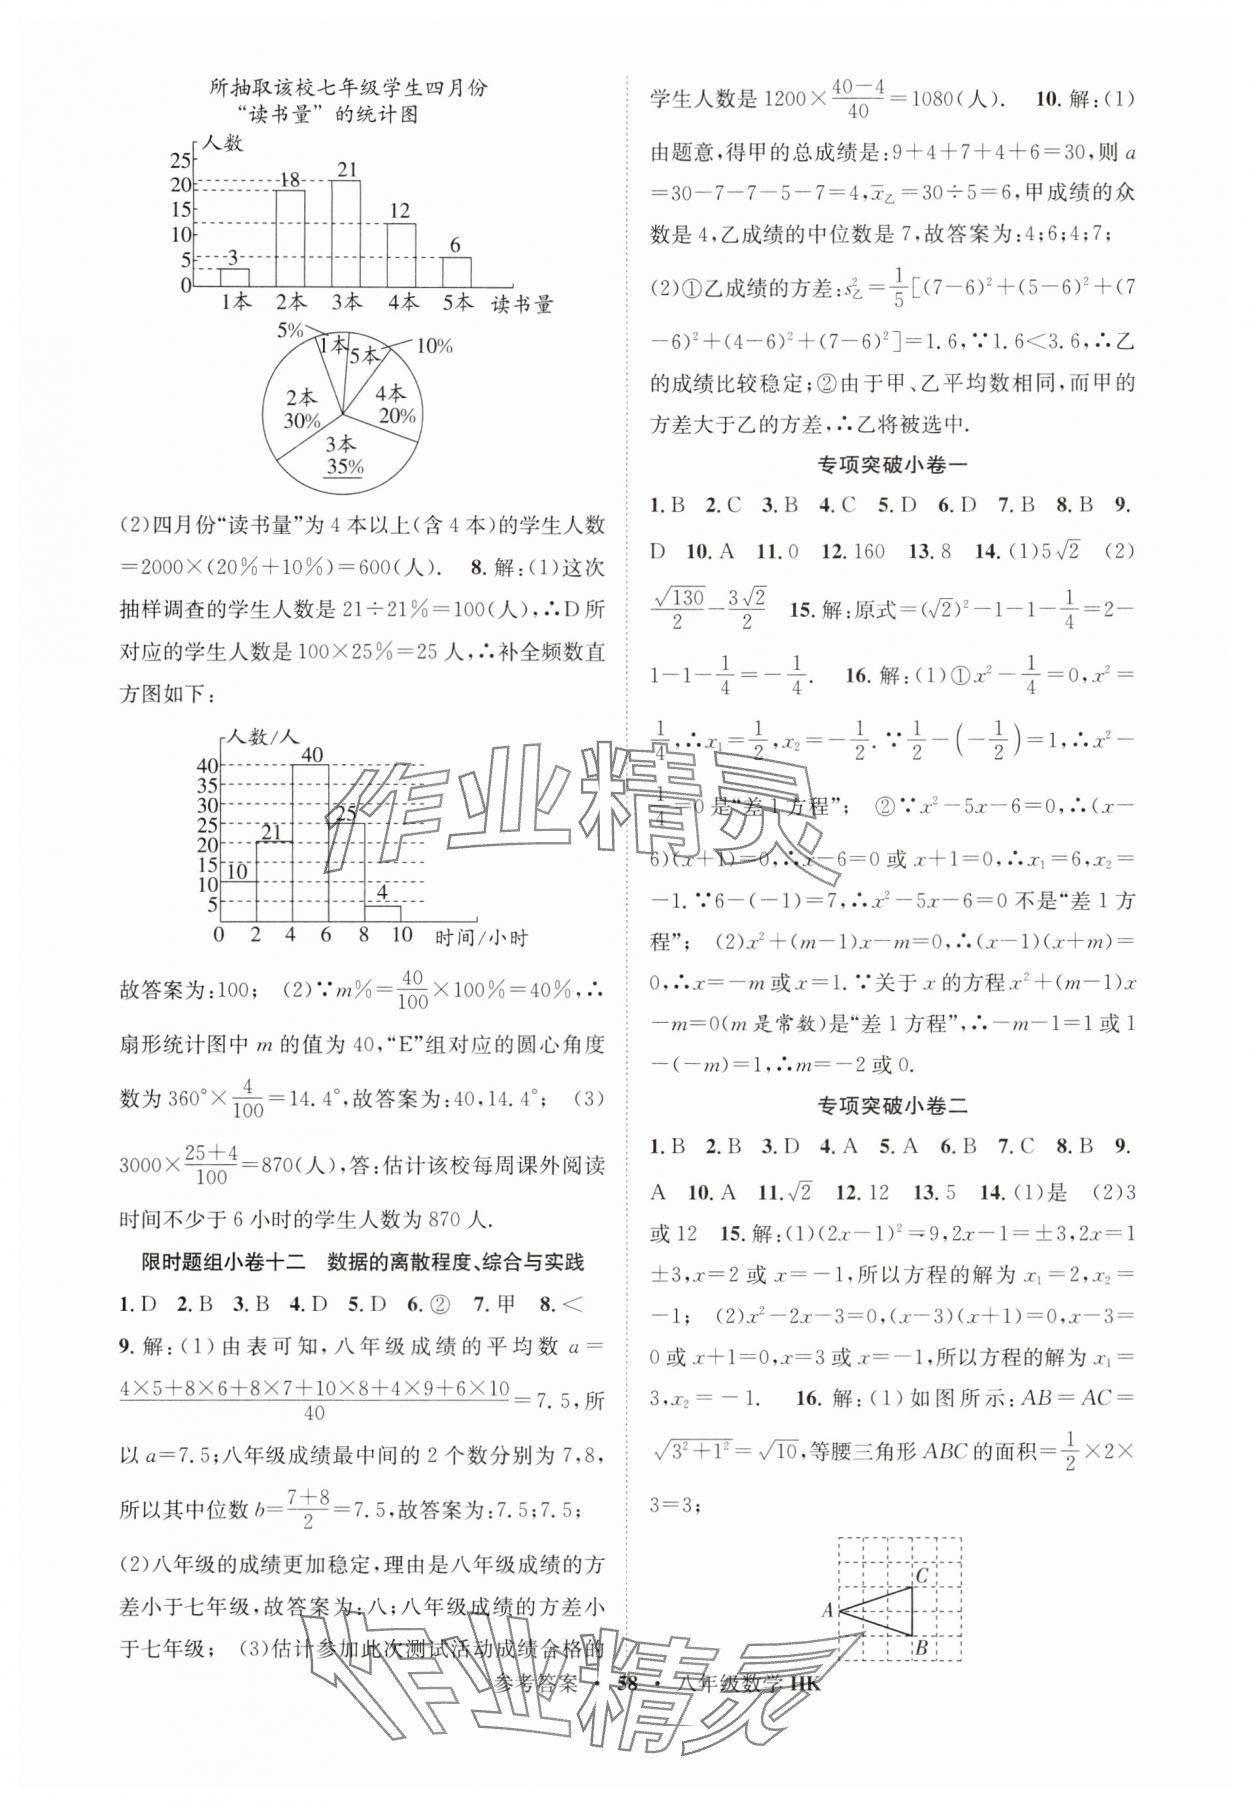 所抽取该校七年级学生四月份
“读书量”的统计图
人数
25
20
15
10
5
0
3
18
21
12
6
1本 2本 3本 4本 5本 读书量
5%
1本
5本
10%
2本
30%
4本
20%
3本
35%
(2)四月份“读书量”为 4 本以上(含 4 本)的学生人数
=2000×(20%+10%)=600(人). 8. 解:(1)这次
抽样调查的学生人数是 21÷21%=100(人),∴D 所
对应的学生人数是 100×25%=25 人,∴补全频数直
方图如下:
人数/人
40
35
30
25
20
15
10
5
10
21
40
25
4
0 2 4 6 8 10 时间/小时
故答案为:100; (2)∵m%=40/100×100%=40%,∴
扇形统计图中 m 的值为 40,“E”组对应的圆心角度
数为 360°×4/100=14.4°,故答案为:40,14.4°; (3)
3000×(25+4)/100=870(人),答:估计该校每周课外阅读
时间不少于 6 小时的学生人数为 870 人.
限时题组小卷十二 数据的离散程度、综合与实践
1. D 2. B 3. B 4. D 5. D 6. ② 7. 甲 8. <
9. 解:(1)由表可知,八年级成绩的平均数 a=
(4×5+8×6+8×7+10×8+4×9+6×10)/40=7.5,所
以 a=7.5;八年级成绩最中间的 2 个数分别为 7,8,
所以其中位数 b=(7+8)/2=7.5,故答案为:7.5;7.5;
(2)八年级的成绩更加稳定,理由是八年级成绩的方
差小于七年级,故答案为:八;八年级成绩的方差小
于七年级; (3)估计参加此次测试活动成绩合格的
学生人数是 1200×(40-4)/40=1080(人). 10. 解:(1)
由题意,得甲的总成绩是:9+4+7+4+6=30,则 a
=30-7-7-5-7=4,x̄乙=30÷5=6,甲成绩的众
数是 4,乙成绩的中位数是 7,故答案为:4;6;4;7;
(2)①乙成绩的方差:s²乙=1/5[(7-6)²+(5-6)²+(7
-6)²+(4-6)²+(7-6)²]=1.6,∵1.6<3.6,∴乙
的成绩比较稳定;②由于甲、乙平均数相同,而甲的
方差大于乙的方差,∴乙将被选中.
专项突破小卷一
1. B 2. C 3. B 4. C 5. D 6. D 7. B 8. B 9.
D 10. A 11. 0 12. 160 13. 8 14. (1)5√2 (2)
√130/2-3√2/2 15. 解:原式=(√2)²-1-1-1/4=2-
1-1-1/4=-1/4. 16. 解:(1)①x²-1/4=0,x²=
1/4,∴x₁=1/2,x₂=-1/2.∵1/2-(-1/2)=1,∴x²-
1/4=0 是“差 1 方程”; ②∵x²-5x-6=0,∴(x-
6)(x+1)=0,∴x-6=0 或 x+1=0,∴x₁=6,x₂=
-1.∵6-(-1)=7,∴x²-5x-6=0 不是“差 1 方
程”; (2)x²+(m-1)x-m=0,∴(x-1)(x+m)=
0,∴x=-m 或 x=1.∵关于 x 的方程 x²+(m-1)x
-m=0(m 是常数)是“差 1 方程”,∴-m-1=1 或 1
-(-m)=1,∴m=-2 或 0.
专项突破小卷二
1. B 2. B 3. D 4. A 5. A 6. B 7. C 8. B 9.
A 10. A 11. √2 12. 12 13. 5 14. (1)是 (2)3
或 12 15. 解:(1)(2x-1)²=9,2x-1=±3,2x=1
±3,x=2 或 x=-1,所以方程的解为 x₁=2,x₂=
-1; (2)x²-2x-3=0,(x-3)(x+1)=0,x-3=
0 或 x+1=0,x=3 或 x=-1,所以方程的解为 x₁=
3,x₂=-1. 16. 解:(1)如图所示:AB=AC=
√(3²+1²)=√10,等腰三角形 ABC 的面积=1/2×2×
3=3;
A
C
B
参考答案 · 58 · 八年级数学 HK
作业精灵
作业精灵